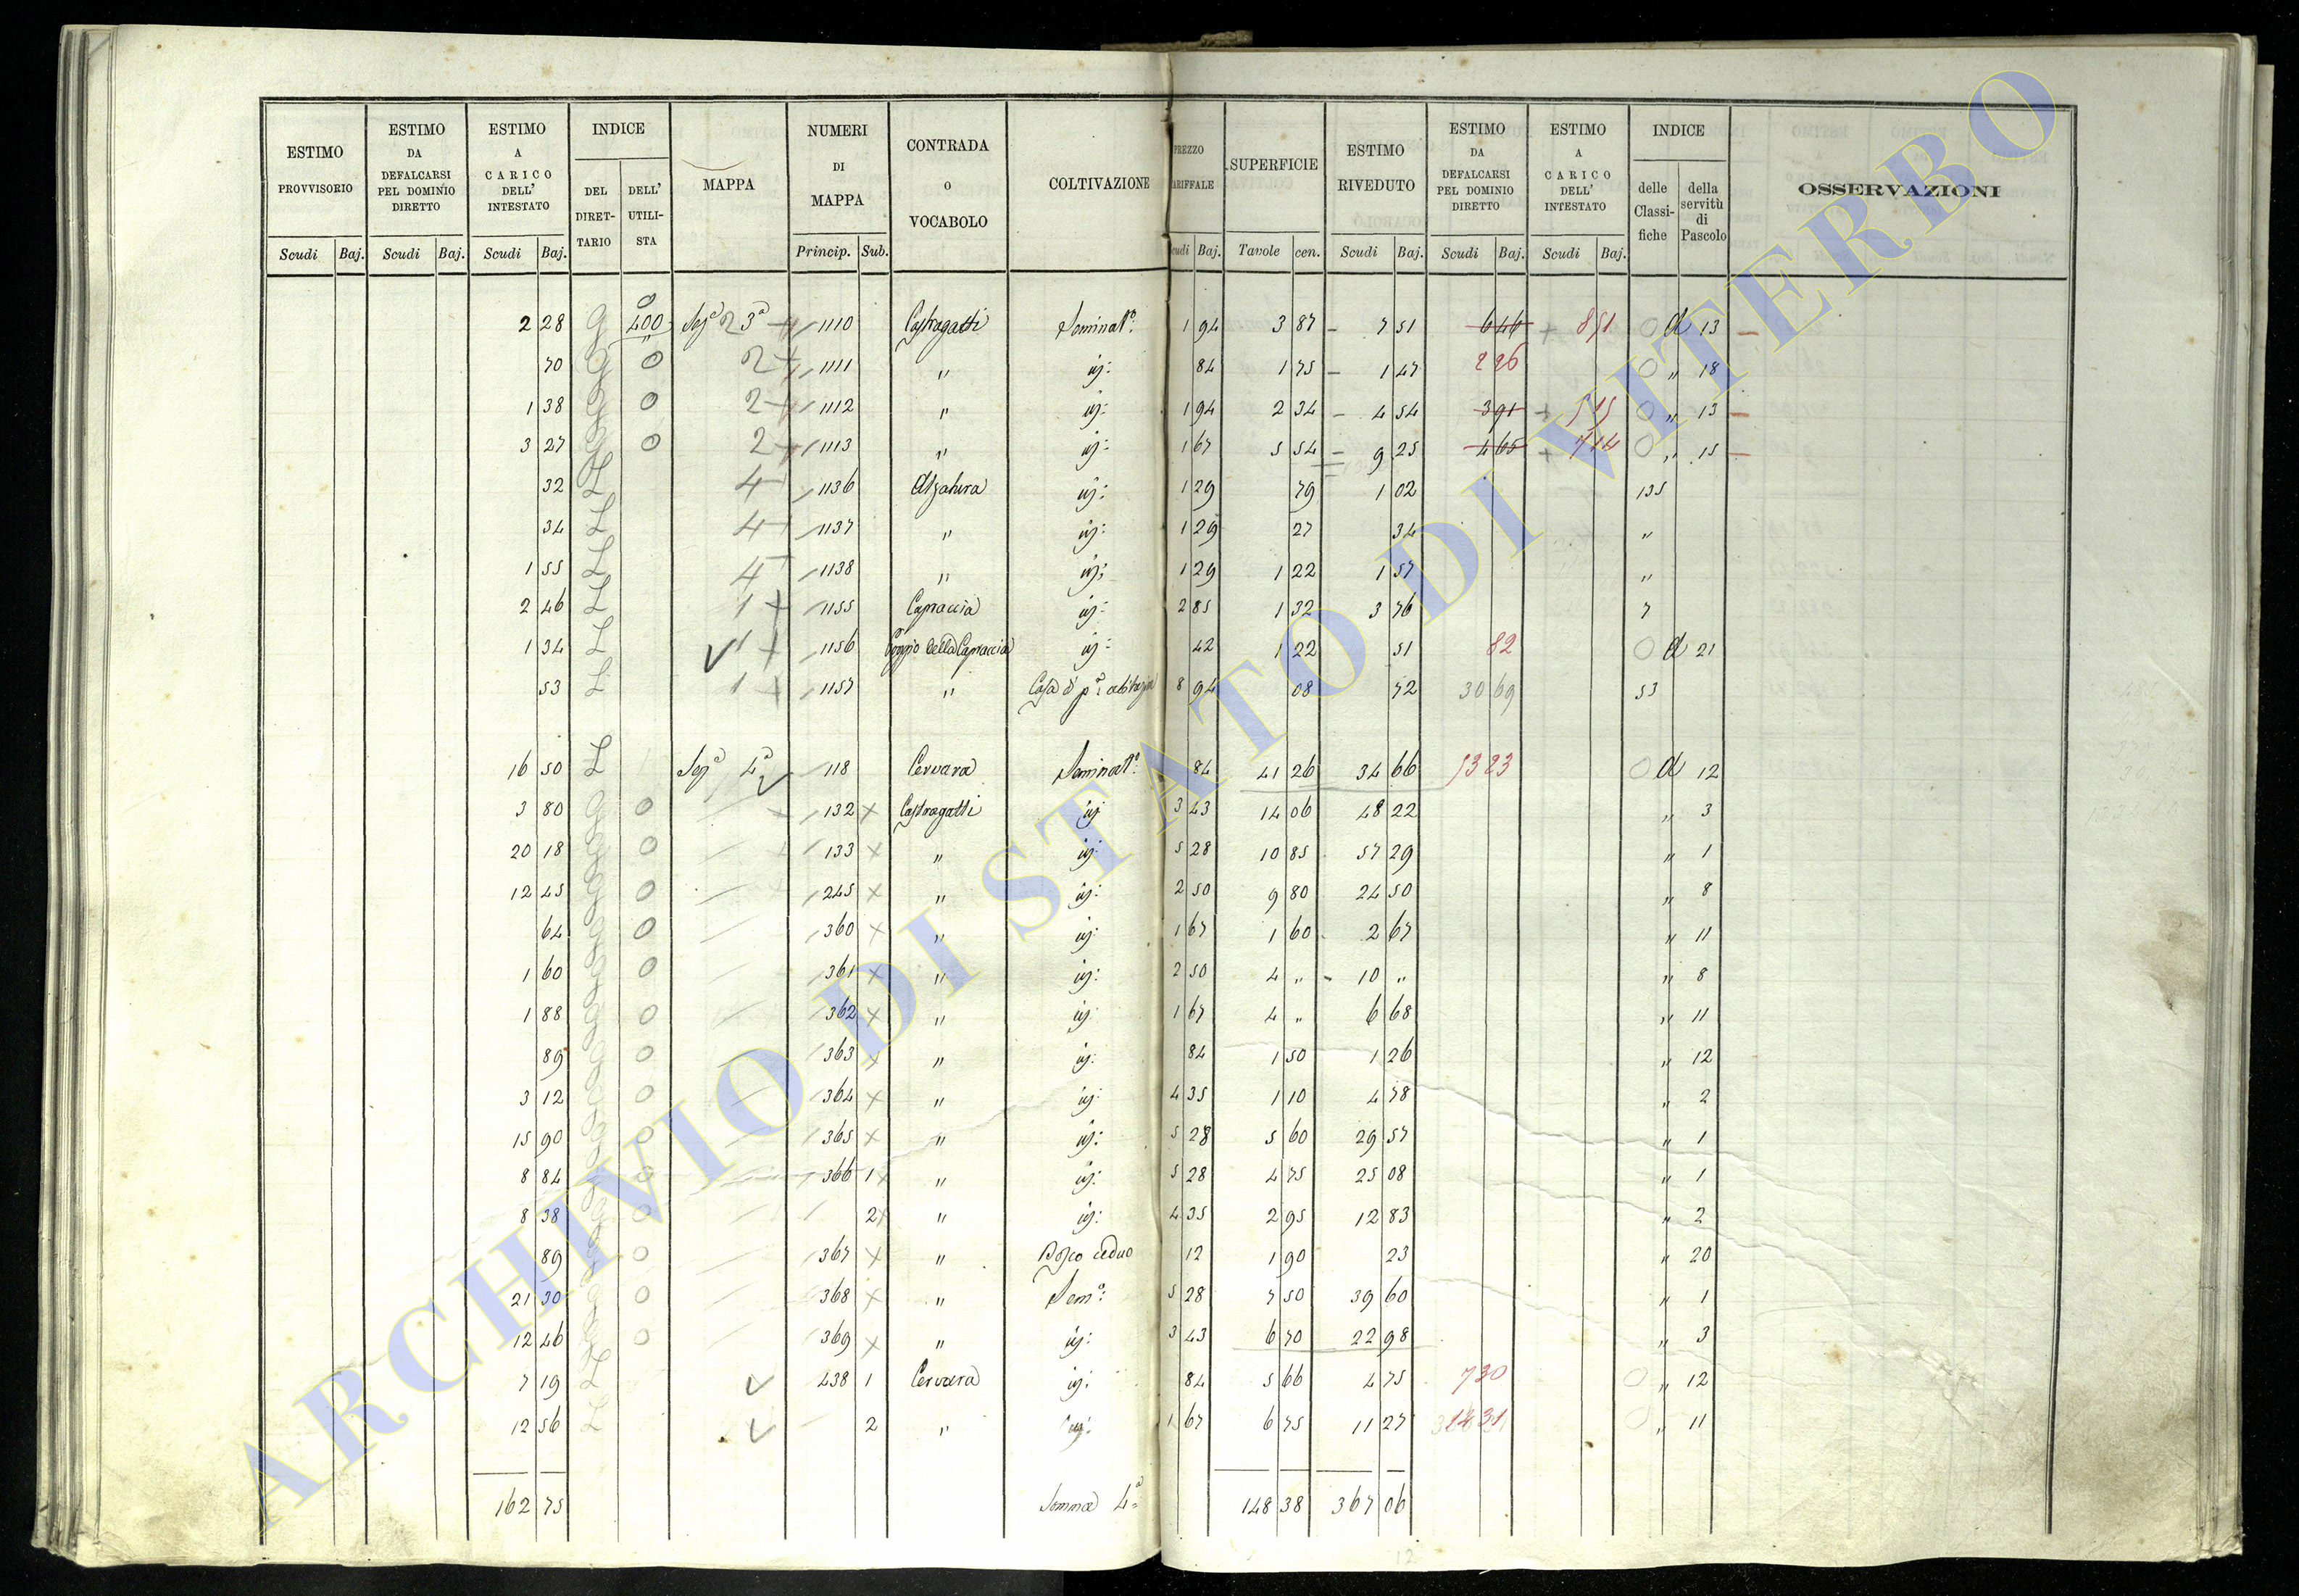 ESTIMO PROVVISORIO | ESTIMO DA DEFALCARSI PEL DOMINIO DIRETTO | ESTIMO A CARICO DELL' INTESTATO | INDICE | MAPPA | NUMERI DI MAPPA | CONTRADA O VOCABOLO | COLTIVAZIONE | PREZZO ARIFFALE | SUPERFICIE | ESTIMO RIVEDUTO | ESTIMO DA DEFALCARSI PEL DOMINIO DIRETTO | ESTIMO A CARICO DELL' INTESTATO | INDICE | OSSERVAZIONI
DEL DIRET-TARIO | DELL' UTILI-STA | delle Classi-fiche | della servitù di Pascolo
Scudi | Baj. | Scudi | Baj. | Scudi | Baj. | Princip. | Sub. | cudi | Baj. | Tavole | cen. | Scudi | Baj. | Scudi | Baj. | Scudi | Baj.
2 28 g 400 Sez.e 2 3a 1110 Castragatti Seminat.o 1 94 3 87 7 51 646 851 O d 13
70 g O 2 1111 " id: 84 1 75 1 47 226 O " 18
1 38 g O 2 1112 " id: 1 94 2 34 4 54 391 515 O " 13
3 27 g O 2 1113 " id: 1 67 5 54 9 25 465 714 O " 15
32 L 4 1136 Alzatura id: 1 29 79 1 02 135
34 L 4 1137 " id: 1 29 27 34 "
1 55 L 4 1138 " id: 1 29 1 22 1 57 "
2 46 L 1 1155 Capraccia id: 2 85 1 32 3 76 7
1 34 L 1 1156 Poggio della Capraccia id: 42 1 22 51 82 O d 21
53 L 1 1157 " Casa di p.a abitazio 8 94 08 72 30 69 53
16 50 L Sez.e 4a 118 Cervara Seminat.o 84 41 26 34 66 5323 O d 12
3 80 g O 132 x Castragatti id 3 43 14 06 48 22 " 3
20 18 g O 133 x " id: 5 28 10 85 57 29 " 1
12 45 g O 245 x " id: 2 50 9 80 24 50 " 8
64 g O 360 x " id: 1 67 1 60 2 67 " 11
1 60 g O 361 x " id: 2 50 4 " 10 " " 8
1 88 g O 362 x " id 1 67 4 " 6 68 " 11
89 g O 363 x " id: 84 1 50 1 26 " 12
3 12 g O 364 x " id: 4 35 1 10 4 78 " 2
15 90 g O 365 x " id: 5 28 5 60 29 57 " 1
8 84 g O 366 1 x " id: 5 28 4 75 25 08 " 1
8 38 g O 2 x " id: 4 35 2 95 12 83 " 2
89 g O 367 x " Bosco ceduo 12 1 90 23 " 20
21 30 g O 368 x " Sem.o: 5 28 7 50 39 60 " 1
12 46 L O 369 x " id: 3 43 6 70 22 98 " 3
7 19 L 438 1 Cervara id: 84 5 66 4 75 730 O " 12
12 56 L 2 " id: 1 67 6 75 11 27 O " 11
162 75 Somma 4a 148 38 367 06
ARCHIVIO DI STATO DI VITERBO